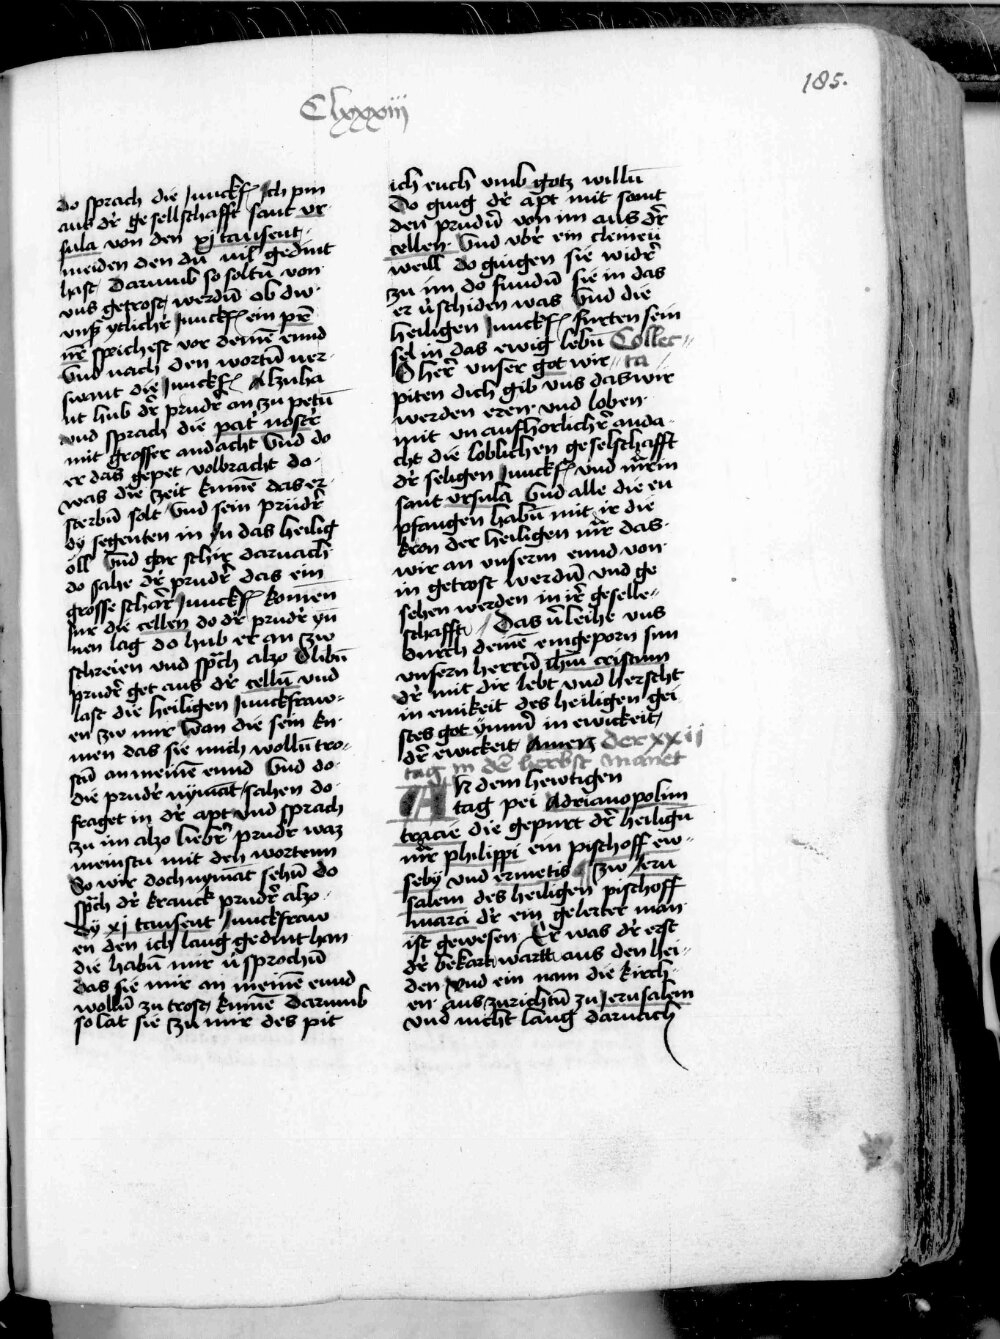 185.
Clxxxiii
do sprach die Junckf Ich pin
aus dr̄ gesellschafft sant vr
sula von den xj tausent
meiden den du uil gedint
hast Darumb so soltu von
vns getrost werdn̄ ob dw
vnsr̄ ytlichr̄ Junckf ein pr̄e
nr̄e sprichest vor deinē ennd
Vnd nach den wortn̄ ver-
swant die Junckf Alzuha
nt hub dr̄ prudr̄ an zu petn̄
vnd sprach die patr̄ nostr̄
mit grosser andacht Vnd do
er das gepet volbracht do
was die zeit kumē das er
sterbn̄ solt Vnd sein prüdr̄
dy segenten in yn das heilig
öll Vnd gar schir darnach
do sahe dr̄ prudr̄ das ein
grosse schar Junckf komen
fur die cellen do dr̄ prudr̄ yn
nen lag do hub er an zw
schreien vnd sprch alzo O libn̄
prudr̄ get aus dr̄ celln̄ vnd
last die heiligen Junckfraw-
en zw mir Wan die sein ku
men das sie mich wolln̄ tro-
stn̄ an meinē ennd Vnd do
die prudr̄ nymat sahen do
fraget in dr̄ apt vnd sprach
zu im alzo liebr̄ prudr̄ waz
meinstu mit den worten
So wir doch nymat sehn̄ do
sprch dr̄ kranck prudr̄ alzo
Dy xj tausent Junckfraw
en den ich lang gedint han
die habn̄ mir v̄sprochn̄
das sie mir an meinē ennd
wolln̄ zu trost kumē Darumb
so lat sie zu mir des pit
ich euch vmb gotz willn̄
Do ging dr̄ apt mit samt
den prudn̄ von im aus dr̄
cellen Vnd vbr̄ ein cleinen
weill do gingen sie widr̄
zu im do fundn̄ sie in das
er v̄schiden was Vnd die
heiligen Junckf furten sein
sel in das ewig lebn̄ Collec-
O her̄ vnser got wir ta
piten dich gib vns das wir
werden eren vnd loben
mit vnaufhorlichr̄ anda
cht die loblichen geselschafft
dr̄ seligen Junckf vnd mr̄rin
sant vrsula Vnd alle die en
pfangen habn̄ mit ir die
kron der heiligen mr̄r das
wir an vnserm ennd von
in getrost werdn̄ vnd ge
sehen werden in ir̄ geselle-
schafft Das v̄leihe vns
durch deinē eingeporn sun
vnsern herrn̄ ihm̄ cristum
dr̄ mit dir lebt vnd herscht
in einikeit des heiligen gei
stes got ymmr̄ in ewickeit
dr̄ ewickeit Amen der xxij
tag in dē herbst manet
An dem hewtigen
tag pei Adrianopolim
tracie die gepurt dr̄ heilign̄
mr̄r philippi ein pischoff ew-
seby vnd ermetis Zw Jeru
salem des heiligen pischoff
marci dr̄ ein gelerter man
ist gewesen Er was dr̄ erst
dr̄ bekart wartt aus den hei-
den vnd ein nam die kirch
en auszurichtn̄ zu Jerusalem
vnd nicht lang darnach